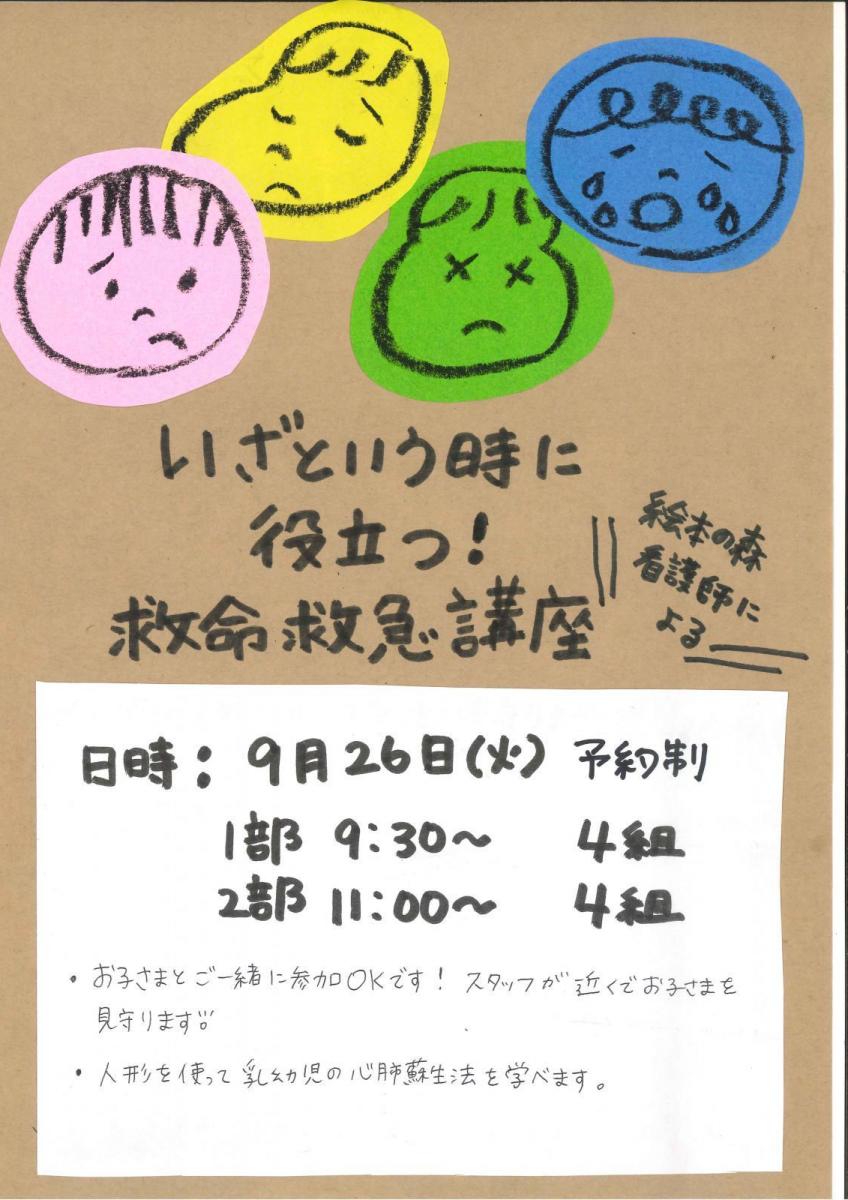 いざという時に
役立つ!
救命救急講座
絵本の森
看護師に
よる
日時: 9月26日(火) 予約制
1部 9:30～ 4組
2部 11:00～ 4組
・お子さまとご一緒に参加OKです! スタッフが近くでお子さまを
見守ります
・人形を使って乳幼児の心肺蘇生法を学べます。